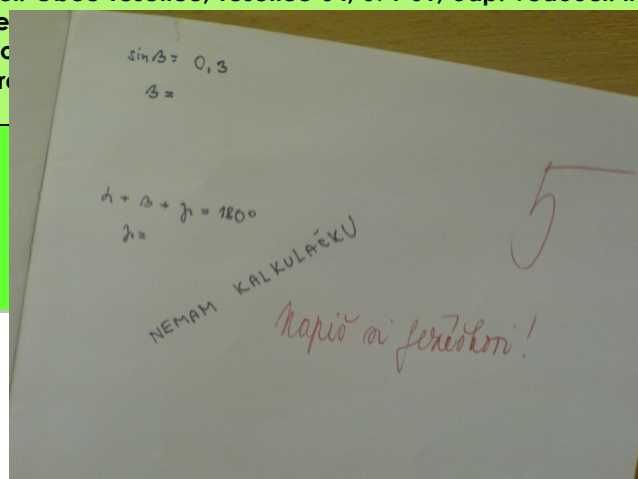 sinβ = 0,3
β =
α + β + γ = 180°
γ =
NEMAM KALKULAČKU
5
Napiš si Ježíškovi!